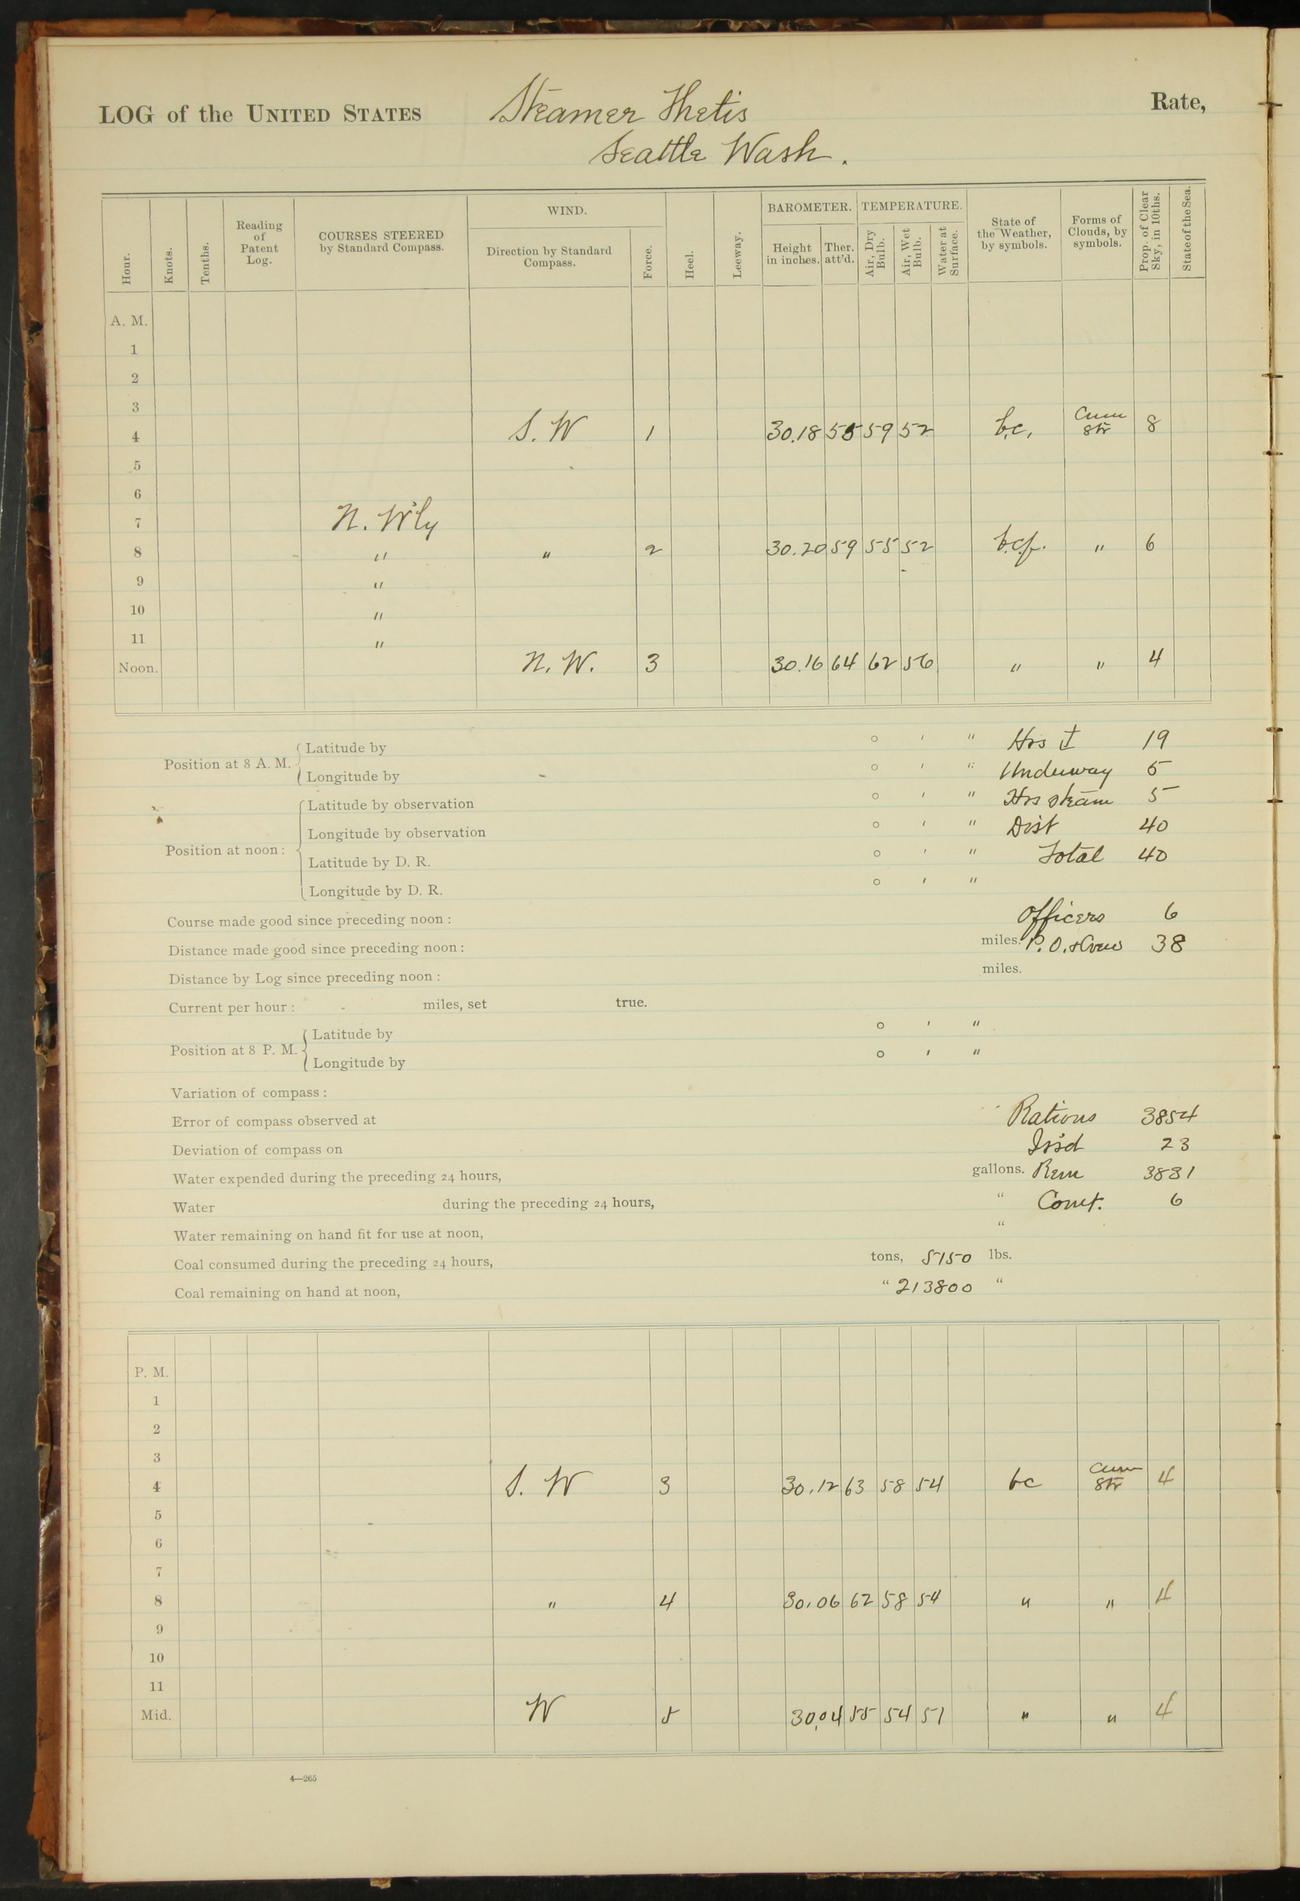 LOG of the UNITED STATES Steamer Thetis Rate,
Seattle Wash.
Hour. Knots. Tenths. Reading of Patent Log. COURSES STEERED by Standard Compass. WIND. Direction by Standard Compass. Force. Heel. Leeway. BAROMETER. Height in inches. Ther. att'd. TEMPERATURE. Air, Dry Bulb. Air, Wet Bulb. Water at Surface. State of the Weather, by symbols. Forms of Clouds, by symbols. Prop. of Clear Sky, in 10ths. State of the Sea.
A. M.
1
2
3
4 S. W 1 30.18 58 59 52 b.c. Cum Str 8
5
6
7 N. W'ly
8 " " 2 30.20 59 55 52 b.c.f. " 6
9 "
10 "
11 "
Noon. N. W. 3 30.16 64 62 56 " " 4
Position at 8 A. M. Latitude by ° ' " Hrs 19
Longitude by ° ' " Underway 5
Position at noon: Latitude by observation ° ' " Hrs steam 5
Longitude by observation ° ' " Dist 40
Latitude by D. R. ° ' " Total 40
Longitude by D. R. ° ' "
Course made good since preceding noon: Officers 6
Distance made good since preceding noon: miles. P. O. & Crew 38
Distance by Log since preceding noon: miles.
Current per hour: miles, set true.
Position at 8 P. M. Latitude by ° ' "
Longitude by ° ' "
Variation of compass:
Error of compass observed at Rations 3854
Deviation of compass on Iss'd 23
Water expended during the preceding 24 hours, gallons. Rem 3831
Water during the preceding 24 hours, " Comt. 6
Water remaining on hand fit for use at noon, "
Coal consumed during the preceding 24 hours, tons, 5150 lbs.
Coal remaining on hand at noon, " 213800 "
P. M.
1
2
3
4 S. W 3 30.12 63 58 54 bc Cum Str 4
5
6
7
8 " 4 30.06 62 58 54 " " 4
9
10
11
Mid. W 5 30.04 55 54 51 " " 4
4—265